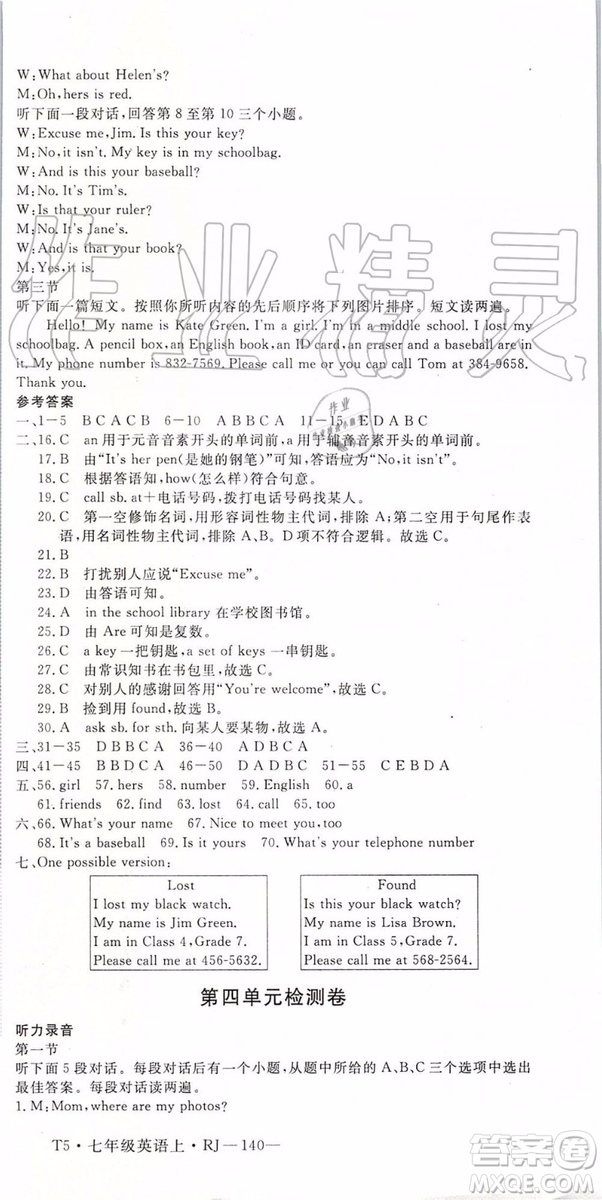 W:What about Helen's?
M:Oh,hers is red.
听下面一段对话,回答第 8 至第 10 三个小题。
W:Excuse me,Jim. Is this your key?
M:No,it isn't. My key is in my schoolbag.
W:And is this your baseball?
M:No. It's Tim's.
W:Is that your ruler?
M:No. It's Jane's.
W:And is that your baseball?
M:Yes,it is.
第三节
听下面一篇短文。按照你所听内容的先后顺序将下列图片排序。短文读两遍。
Hello! My name is Kate Green. I'm a girl. I'm in a middle school. I lost my
schoolbag. A pencil box,an English book,an ID card,an eraser and a baseball are in
it. My phone number is 832-7569. Please call me or you can call Tom at 384-9658.
Thank you.
参考答案
一、1-5 BCACB 6-10 ABBCA 11-15 EDABC
二、16. C an 用于元音音素开头的单词前,a 用于辅音音素开头的单词前。
17. B 由"It's her pen(是她的钢笔)"可知,答语应为"No,it isn't."。
18. C 根据答语知,how(怎么样)符合句意。
19. C call sb. at+电话号码,拨打电话号码找某人。
20. C 第一空修饰名词,用形容词性物主代词,排除 A;第二空用于句尾作表
语,用名词性物主代词,排除 A、B。D 项不符合逻辑。故选 C。
21. B
22. B 打扰别人应说"Excuse me"。
23. D 由答语可知。
24. A in the school library 在学校图书馆。
25. D 由 Are 可知是复数。
26. C a key 一把钥匙,a set of keys 一串钥匙。
27. C 由常识知书在书包里,故选 C。
28. C 对别人的感谢回答用"You're welcome",故选 C。
29. B 捡到用 found,故选 B。
30. A ask sb. for sth. 向某人要某物,故选 A。
三、31-35 DBBCA 36-40 ABDCA
四、41-45 BBDCA 46-50 DADBC 51-55 CEBDA
五、56. girl 57. hers 58. number 59. English 60. in
61. friends 62. find 63. lost 64. call 65. too
六、66. What's your name 67. Nice to meet you,too
68. It's a baseball 69. Is it yours 70. What's your telephone number
七、One possible version:
Lost
I lost my black watch.
My name is Jim Green.
I am in Class 4,Grade 7.
Please call me at 456-5632.
Found
Is this your black watch?
My name is Lisa Brown.
I am in Class 5,Grade 7.
Please call me at 568-2564.
第四单元检测卷
听力录音
第一节
听下面 5 段对话。每段对话后有一个小题,从题中所给的 A、B、C 三个选项中选出
最佳答案。每段对话读两遍。
1. M:Mom,where are my photos?
T5·七年级英语上·RJ—140—
作业精灵